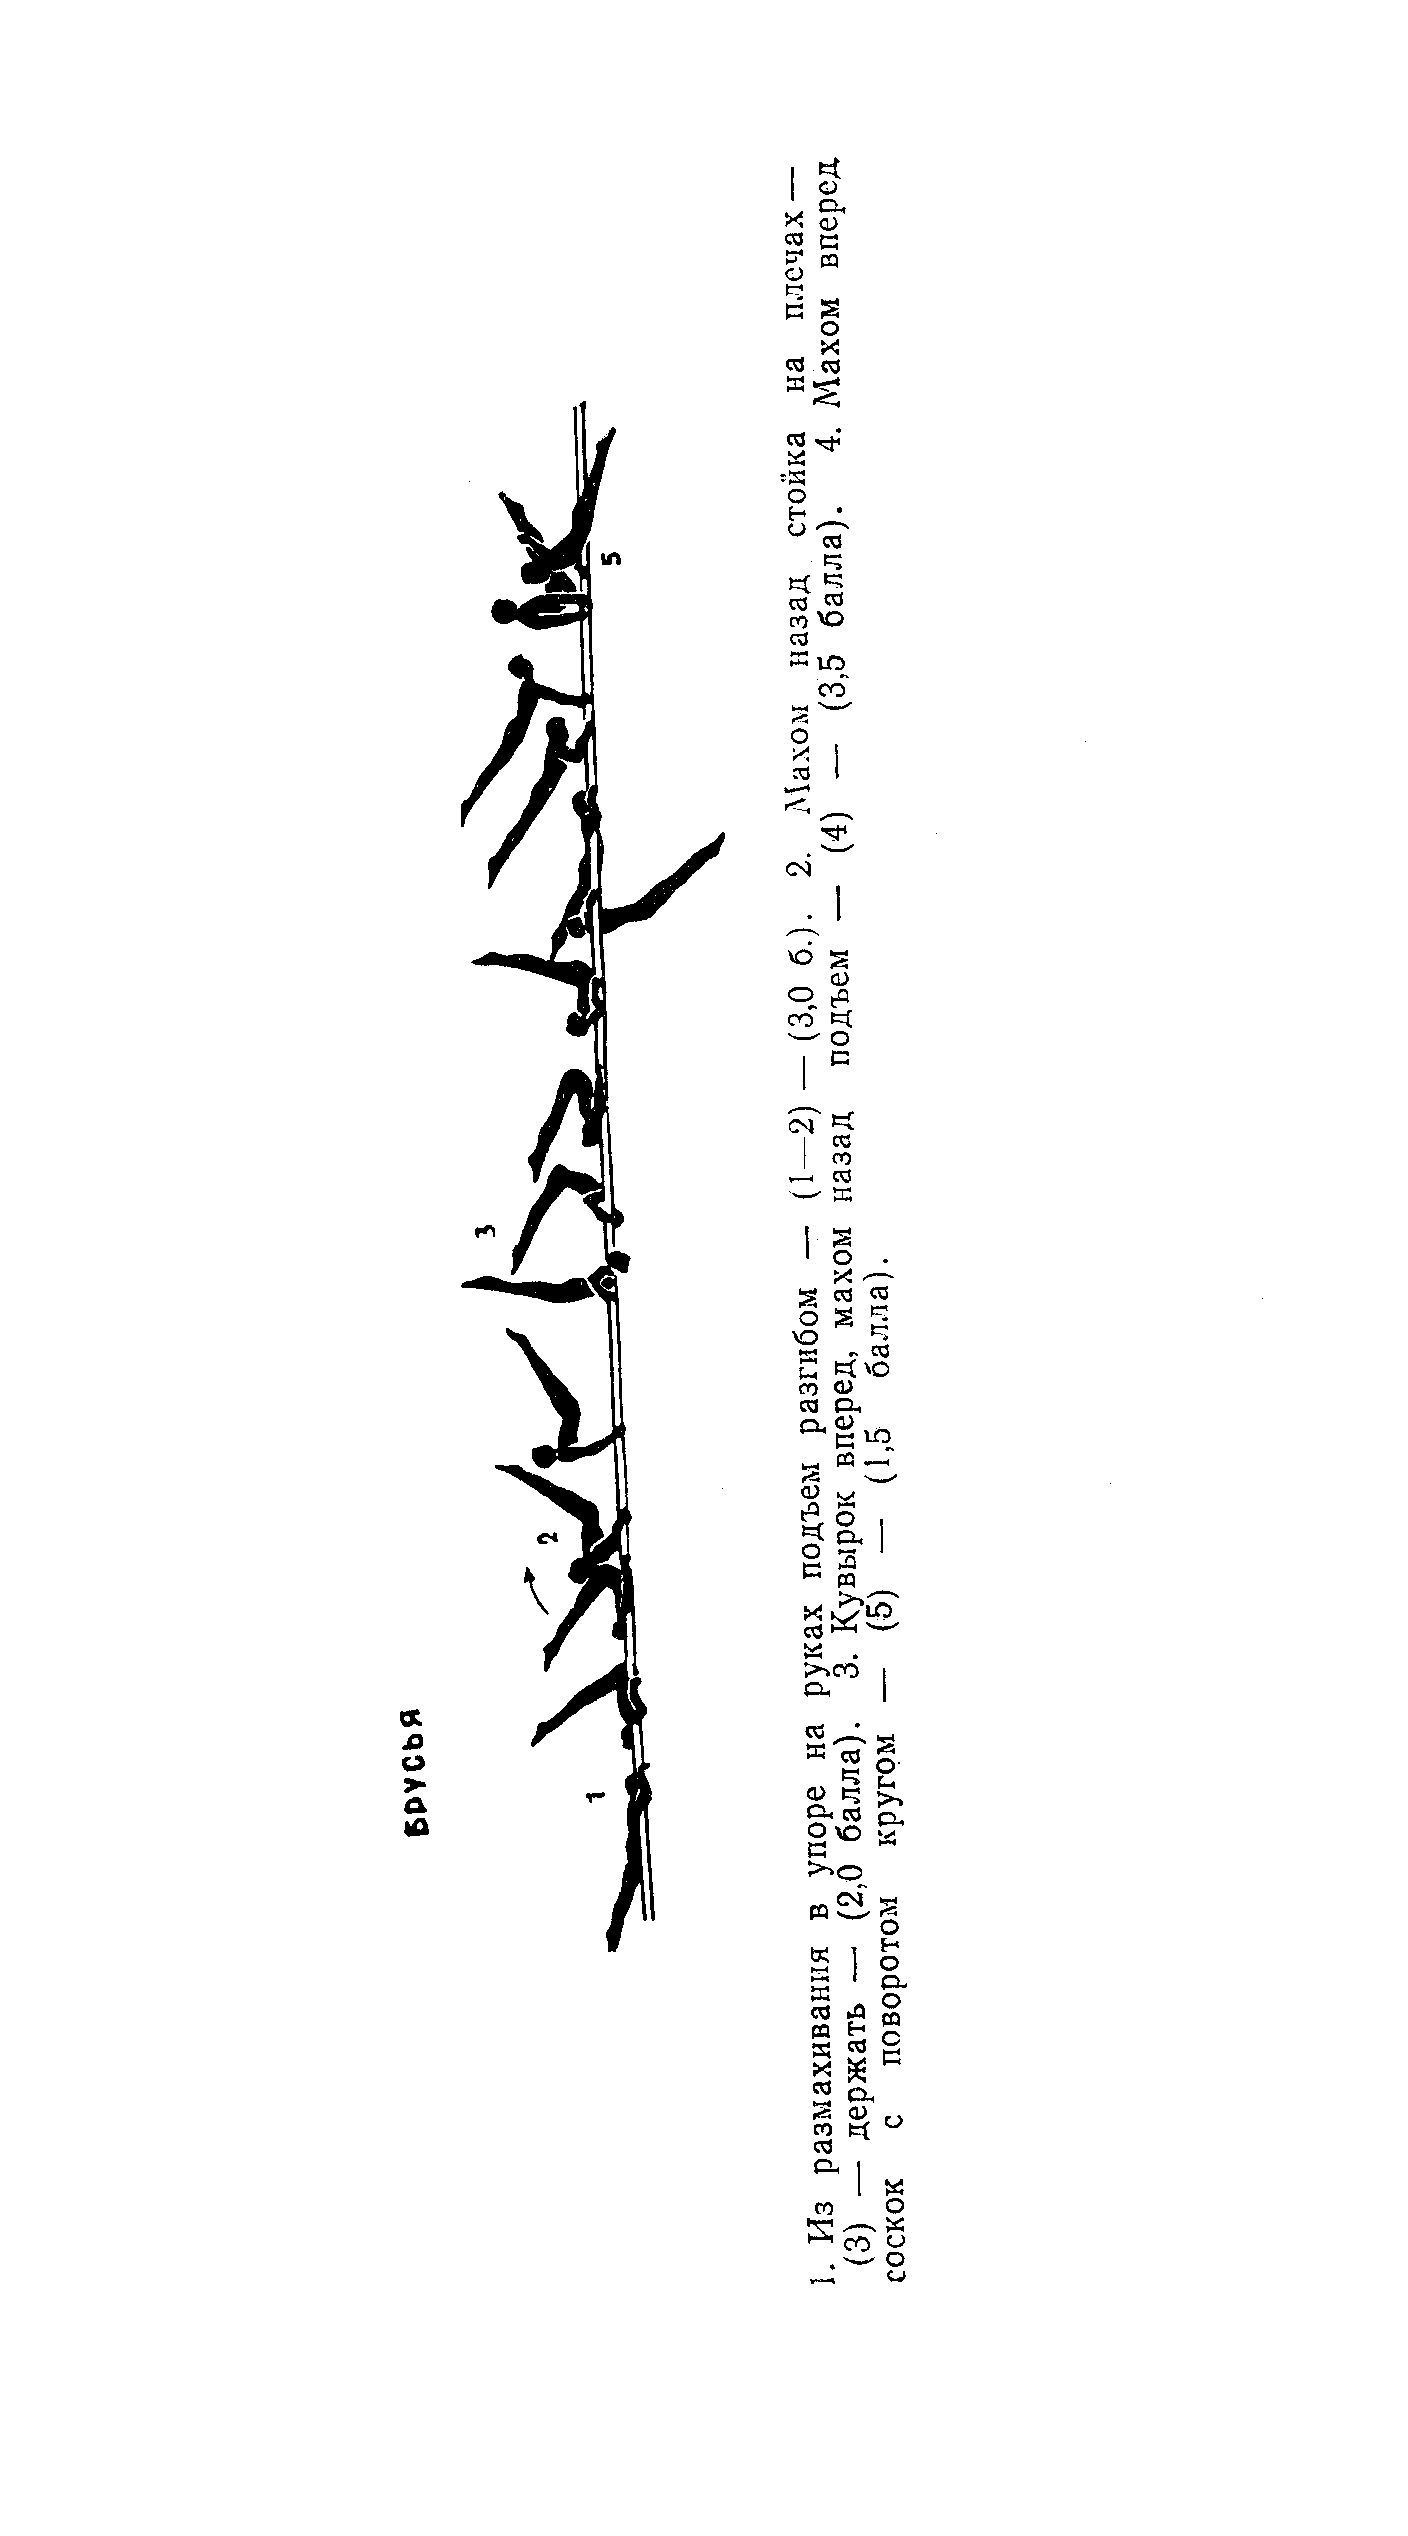 БРУСЬЯ
1
2
3
5
1. Из размахивания в упоре на руках подъем разгибом — (1—2) — (3,0 б.). 2. Махом назад стойка на плечах —
(3) — держать — (2,0 балла). 3. Кувырок вперед, махом назад подъем — (4) — (3,5 балла). 4. Махом вперед
соскок с поворотом кругом — (5) — (1,5 балла).